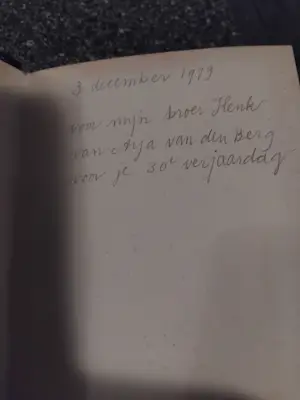 3 december 1979
voor mijn broer Henk
van Anja van den Berg
voor je 30e verjaardag